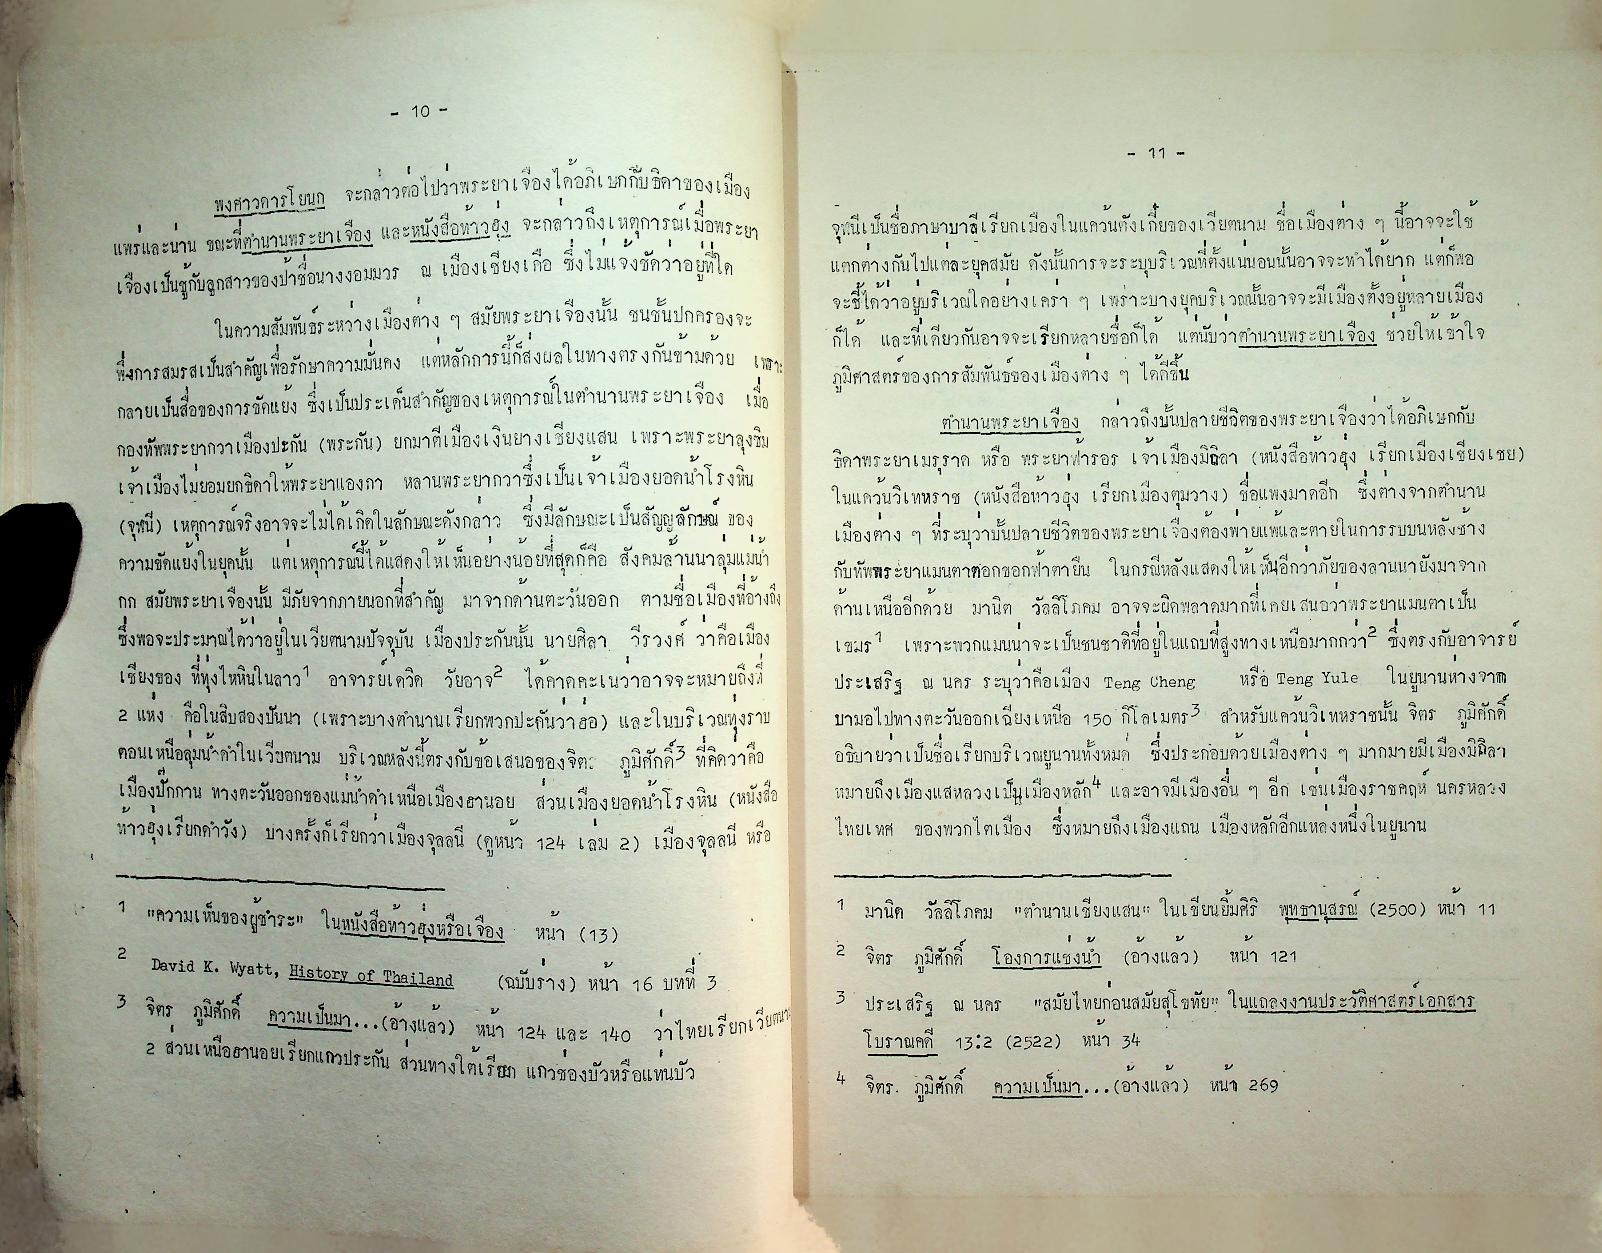 - 10 -
พงศาวดารโยนก จะกล่าวต่อไปว่าพระยาเจืองได้อภิเษกกับธิดาของเมือง
แพร่และน่าน ขณะที่ตำนานพระยาเจือง และหนังสือท้าวฮุ่ง จะกล่าวถึงเหตุการณ์เมื่อพระยา
เจืองเป็นชู้กับลูกสาวของป้าชื่อนางงอมมวร ณ เมืองเชียงเครือ ซึ่งไม่แจ้งชัดว่าอยู่ที่ใด
ในความสัมพันธ์ระหว่างเมืองต่าง ๆ สมัยพระยาเจืองนั้น ชนชั้นปกครองจะ
พึ่งการสมรสเป็นสำคัญเพื่อรักษาความมั่นคง แต่หลักการนี้ก็ส่งผลในทางตรงกันข้ามด้วย เพราะ
กลายเป็นสื่อของการขัดแย้ง ซึ่งเป็นประเด็นสำคัญของเหตุการณ์ในตำนานพระยาเจือง เมื่อ
กองทัพพระยากวาเมืองปะกัน (พระกัน) ยกมาตีเมืองเงินยางเชียงแสน เพราะพระยาลุงชิม
เจ้าเมืองไม่ยอมยกธิดาให้พระยาแองกา หลานพระยากวาซึ่งเป็นเจ้าเมืองยอดน้ำโรงหิน
(จุฬนี) เหตุการณ์จริงอาจจะไม่ได้เกิดในลักษณะดังกล่าว ซึ่งมีลักษณะเป็นสัญญลักษณ์ ของ
ความขัดแย้งในยุคนั้น แต่เหตุการณ์นี้ได้แสดงให้เห็นอย่างน้อยที่สุดก็คือ สังคมล้านนาลุ่มแม่น้ำ
กก สมัยพระยาเจืองนั้น มีภัยจากภายนอกที่สำคัญ มาจากด้านตะวันออก ตามชื่อเมืองที่อ้างถึง
ซึ่งพอจะประมาณได้ว่าอยู่ในเวียตนามปัจจุบัน เมืองประกันนั้น นายศิลา วีรวงศ์ ว่าคือเมือง
เชียงของ ที่ทุ่งไหหินในลาว1 อาจารย์เดวิด วัยอาจ2 ได้คาดคะเนว่าอาจจะหมายถึงที่
2 แห่ง คือในสิบสองปันนา (เพราะบางตำนานเรียกพวกปะกันว่าฮ่อ) และในบริเวณทุ่งราบ
ตอนเหนือลุ่มน้ำดำในเวียตนาม บริเวณหลังนี้ตรงกับข้อเสนอของจิตร ภูมิศักดิ์3 ที่คิดว่าคือ
เมืองปั๊กกาน ทางตะวันออกของแม่น้ำดำเหนือเมืองฮานอย ส่วนเมืองยอดน้ำโรงหิน (หนังสือ
ท้าวฮุ่งเรียกคำวัง) บางครั้งก็เรียกว่าเมืองจุลลนี (ดูหน้า 124 เล่ม 2) เมืองจุลลนี หรือ
1 "ความเห็นของผู้ชำระ" ในหนังสือท้าวฮุ่งหรือเจือง หน้า (13)
2 David K. Wyatt, History of Thailand (ฉบับร่าง) หน้า 16 บทที่ 3
3 จิตร ภูมิศักดิ์ ความเป็นมา...(อ้างแล้ว) หน้า 124 และ 140 ว่าไทยเรียกเวียตนาม
2 ส่วนเหนือฮานอยเรียกแกวประกัน ส่วนทางใต้เรียก แกวช่องบัวหรือแท่นบัว
- 11 -
จุฬนีเป็นชื่อภาษาบาลีเรียกเมืองในแคว้นตังเกี๋ยของเวียตนาม ชื่อเมืองต่าง ๆ นี้อาจจะใช้
แตกต่างกันไปแต่ละยุคสมัย ดังนั้นการจะระบุบริเวณที่ตั้งแน่นอนนั้นอาจจะทำได้ยาก แต่ก็พอ
จะชี้ได้ว่าอยู่บริเวณใดอย่างเคร่า ๆ เพราะบางยุคบริเวณนั้นอาจจะมีเมืองตั้งอยู่หลายเมือง
ก็ได้ และที่เดียวกันอาจจะเรียกหลายชื่อก็ได้ แต่นับว่าตำนานพระยาเจือง ช่วยให้เข้าใจ
ภูมิศาสตร์ของการสัมพันธ์ของเมืองต่าง ๆ ได้ดีขึ้น
ตำนานพระยาเจือง กล่าวถึงบั้นปลายชีวิตของพระยาเจืองว่าได้อภิเษกกับ
ธิดาพระยาเมรุราด หรือ พระยาฟ้ารอร เจ้าเมืองมิถิลา (หนังสือท้าวฮุ่ง เรียกเมืองเชียงเชย)
ในแคว้นวิเทหราช (หนังสือท้าวฮุ่ง เรียกเมืองตุมวาง) ชื่อแพงมาดอีก ซึ่งต่างจากตำนาน
เมืองต่าง ๆ ที่ระบุว่าบั้นปลายชีวิตของพระยาเจืองต้องพ่ายแพ้และตายในการรบบนหลังช้าง
กับทัพพระยาแมนตาตอกขอกฟ้าตายืน ในกรณีหลังแสดงให้เห็นอีกว่าภัยของลานนายังมาจาก
ด้านเหนืออีกด้วย มานิต วัลลิโภคม อาจจะผิดพลาดมากที่เคยเสนอว่าพระยาแมนตาเป็น
เขมร1 เพราะพวกแมนน่าจะเป็นชนชาติที่อยู่ในแถบที่สูงทางเหนือมากกว่า2 ซึ่งตรงกับอาจารย์
ประเสริฐ ณ นคร ระบุว่าคือเมือง Teng Cheng หรือ Teng Yule ในยูนานห่างจาก
บามอไปทางตะวันออกเฉียงเหนือ 150 กิโลเมตร3 สำหรับแคว้นวิเทหราชนั้น จิตร ภูมิศักดิ์
อธิบายว่าเป็นชื่อเรียกบริเวณยูนานทั้งหมด ซึ่งประกอบด้วยเมืองต่าง ๆ มากมายมีเมืองมิถิลา
หมายถึงเมืองแสหลวงเป็นเมืองหลัก4 และอาจมีเมืองอื่น ๆ อีก เช่นเมืองราชคฤห์ นครหลวง
ไทยเทศ ของพวกไตเมือง ซึ่งหมายถึงเมืองแถน เมืองหลักอีกแหล่งหนึ่งในยูนาน
1 มานิต วัลลิโภคม "ตำนานเชียงแสน" ในเขียนยิ้มศิริ พุทธานุสรณ์ (2500) หน้า 11
2 จิตร ภูมิศักดิ์ โองการแช่งน้ำ (อ้างแล้ว) หน้า 121
3 ประเสริฐ ณ นคร "สมัยไทยก่อนสมัยสุโขทัย" ในแถลงงานประวัติศาสตร์เอกสาร
โบราณคดี 13:2 (2522) หน้า 34
4 จิตร. ภูมิศักดิ์ ความเป็นมา...(อ้างแล้ว) หน้า 269